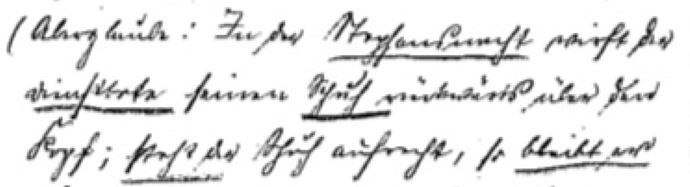 (Aberglaube: In der Stephansnacht wirft der
Dienstbote seinen Schuh rückwärts über den
Kopf; steht der Schuh aufrecht, so bleibt er